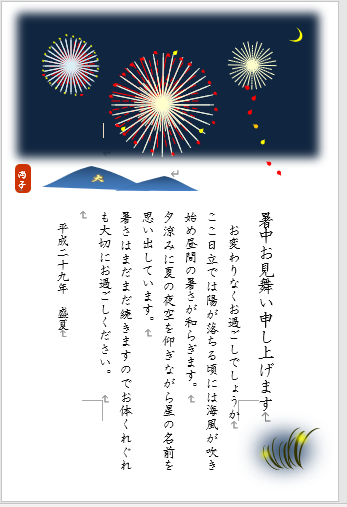 暑中お見舞い申し上げます
お変わりなくお過ごしでしょうか
ここ日立では陽が落ちる頃には海風が吹き
始め昼間の暑さが和らぎます。
夕涼みに夏の夜空を仰ぎながら星の名前を
思い出しています。
暑さはまだまだ続きますのでお体くれぐれ
も大切にお過ごしください。
平成二十九年 盛夏
大